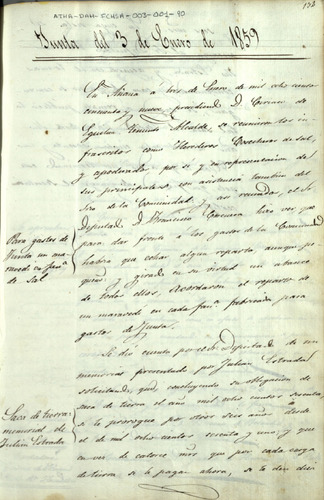 ATHA-DAH-FCHSA-003-001-90
Junta del 3 de Enero de 1859
En Añana a tres de Enero de mil ocho cientos
cincuenta y nueve presidiendo D.
Alcalde, se reunieron los in-
frascritos como Herederos Cosecheros de Sal,
y apoderados, por si y en representacion de
sus principales, con asistencia tambien del
de la Comunidad, y así reunidos, el Sr
Diputado D. hizo ver que
para dar frente a los gastos de la Comunidad
habra que echar algun reparto, aunque pe-
queño, y girado en su virtud un abance
de todos ellos, acordaron el reparto de
un maravedi en cada fana. fabricada para
gastos de Junta.
Para gastos de
Junta un ma-
ravedi en fana.
de Sal
Se dio cuenta por el Sr Diputado de un
memorial presentado por Julian Estrada
solicitando, que, concluyendo su obligacion de
saca de tierra el año mil ocho cientos sesenta,
se le prorrogue por otros seis años desde
el de mil ocho cientos sesenta y uno, y que
en vez de catorce mrs que por cada carga
de tierra se le pagan ahora, se le den diez
Saca de tierra:
memorial de
Julian Estrada